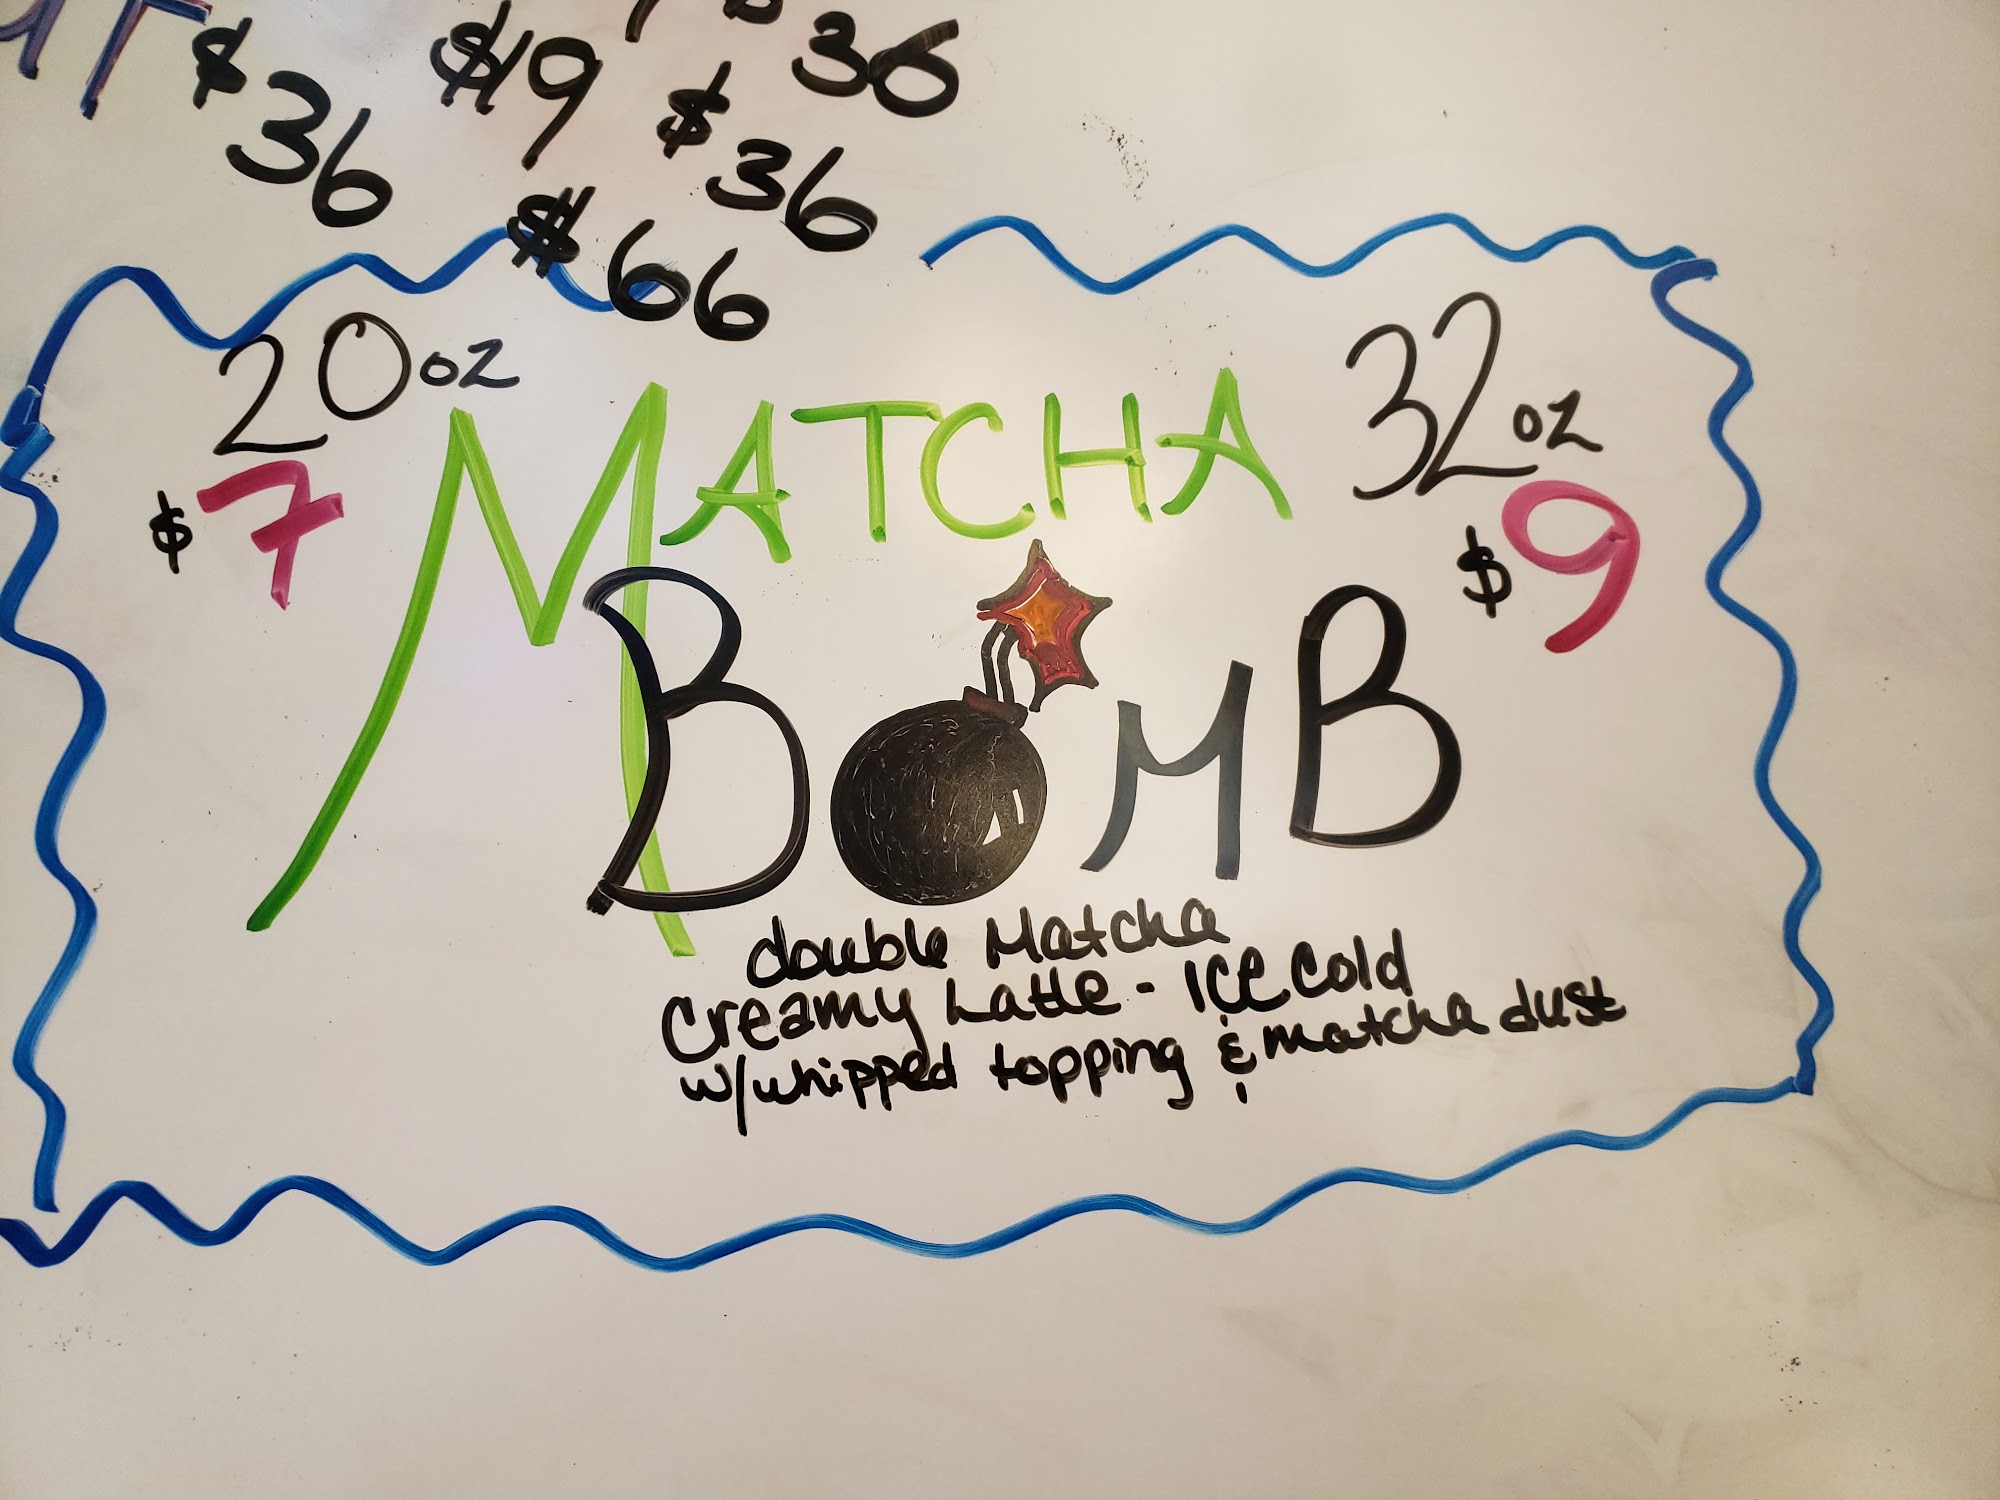 $36
$19
$36
$36
$66
20oz
$7
32oz
$9
MATCHA
BOMB
double Matcha
Creamy Latte - ICE Cold
w/whipped topping & matcha dust